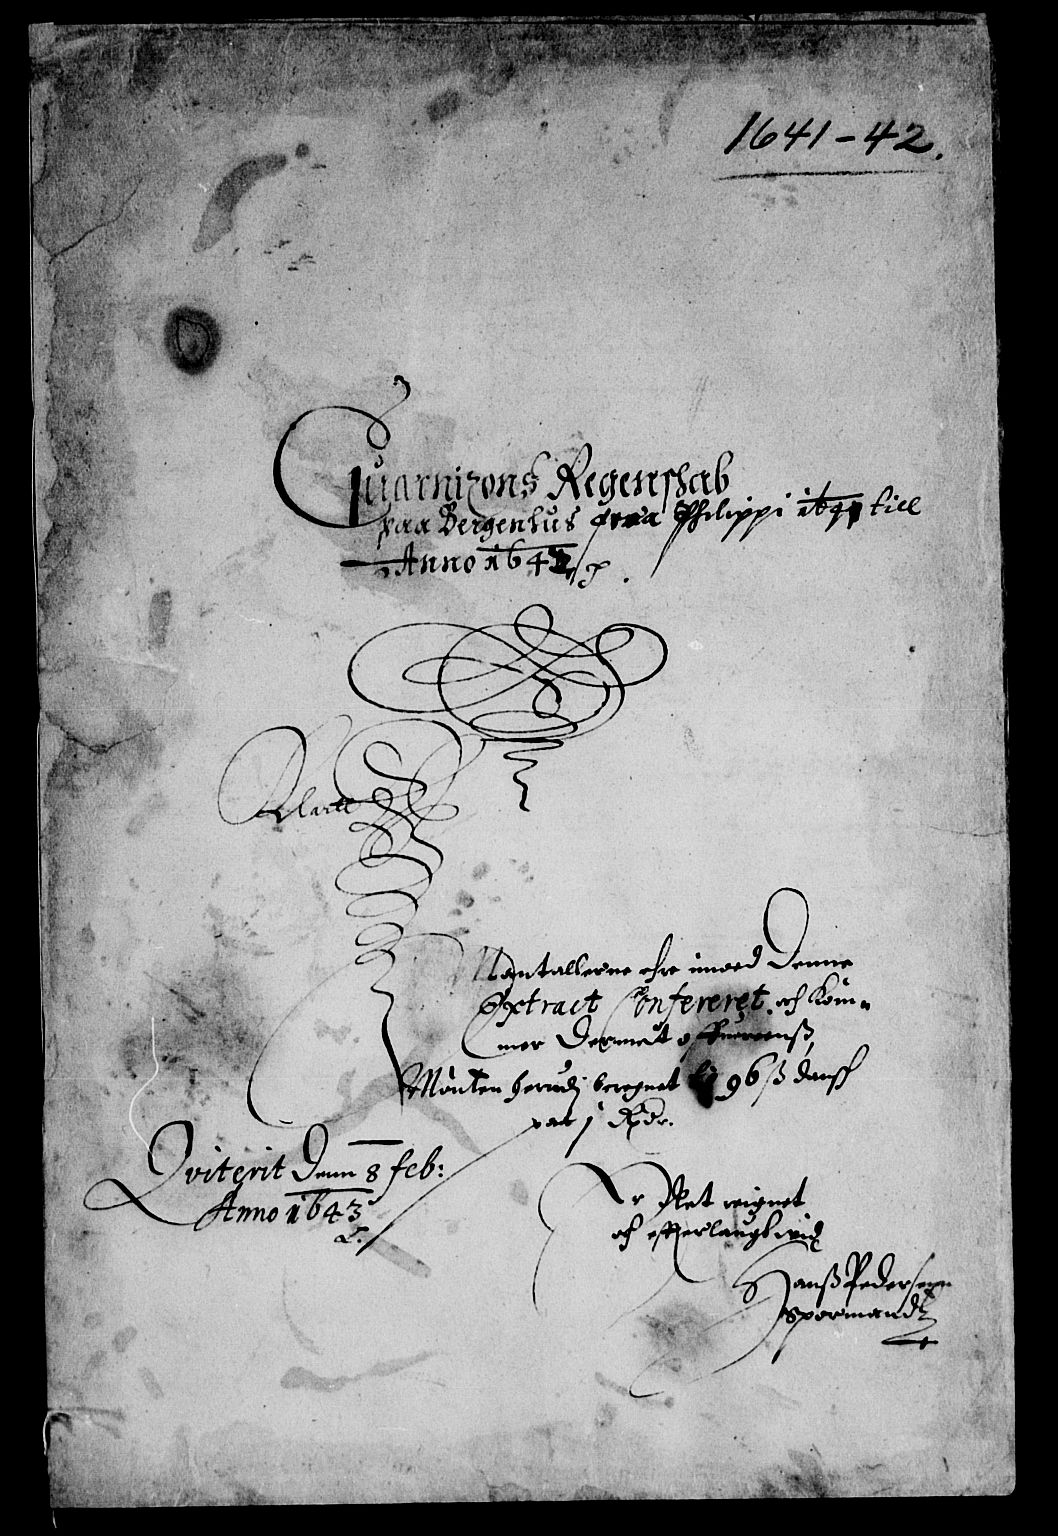 1641-42.
Guarnizons Regenskab
paa Bergenhus fraa Philippi 1641 till
Anno 1642
Klart
Mantallerne ehre imoed Denne
Extract Confereret och Kom=
mer Dermet offuereenß,
Mønten herudj beregnet 96 ß dansk
paa j Rdr.
Qviterit Denn 8 feb:
Anno 1643
Er slet reignet
och efterlaugt ved
Hanß Pedersenn